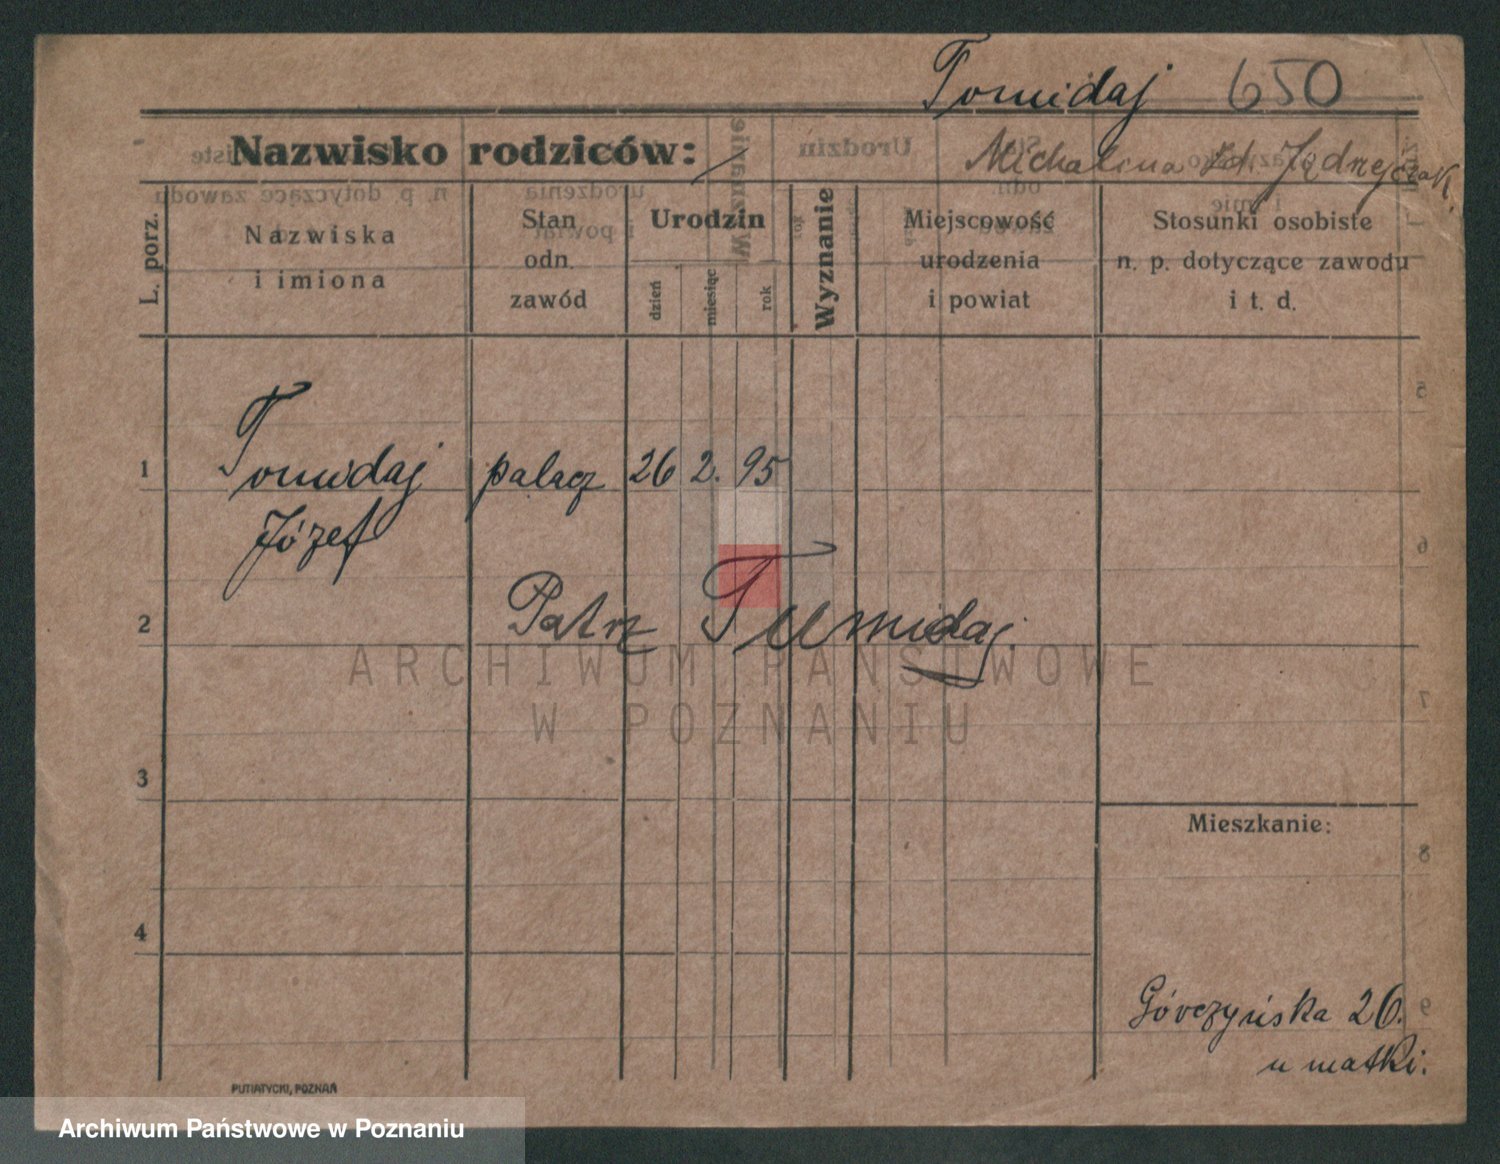 Tomidaj 650
Nazwisko rodziców:
Michalina zd. Jędrzejczak.
L. porz.
Nazwiska
i imiona
Stan
odn.
zawód
Urodzin
dzień
miesiąc
rok
Wyznanie
Miejscowość
urodzenia
i powiat
Stosunki osobiste
n. p. dotyczące zawodu
i t. d.
1 Tomidaj palacz 26 2. 95
Józef
2 Patrz Tumidaj.
3
Mieszkanie:
4
Górczyńska 26.
u matki.
PUTIATYCKI, POZNAŃ
ARCHIWUM PAŃSTWOWE
W POZNANIU
Archiwum Państwowe w Poznaniu